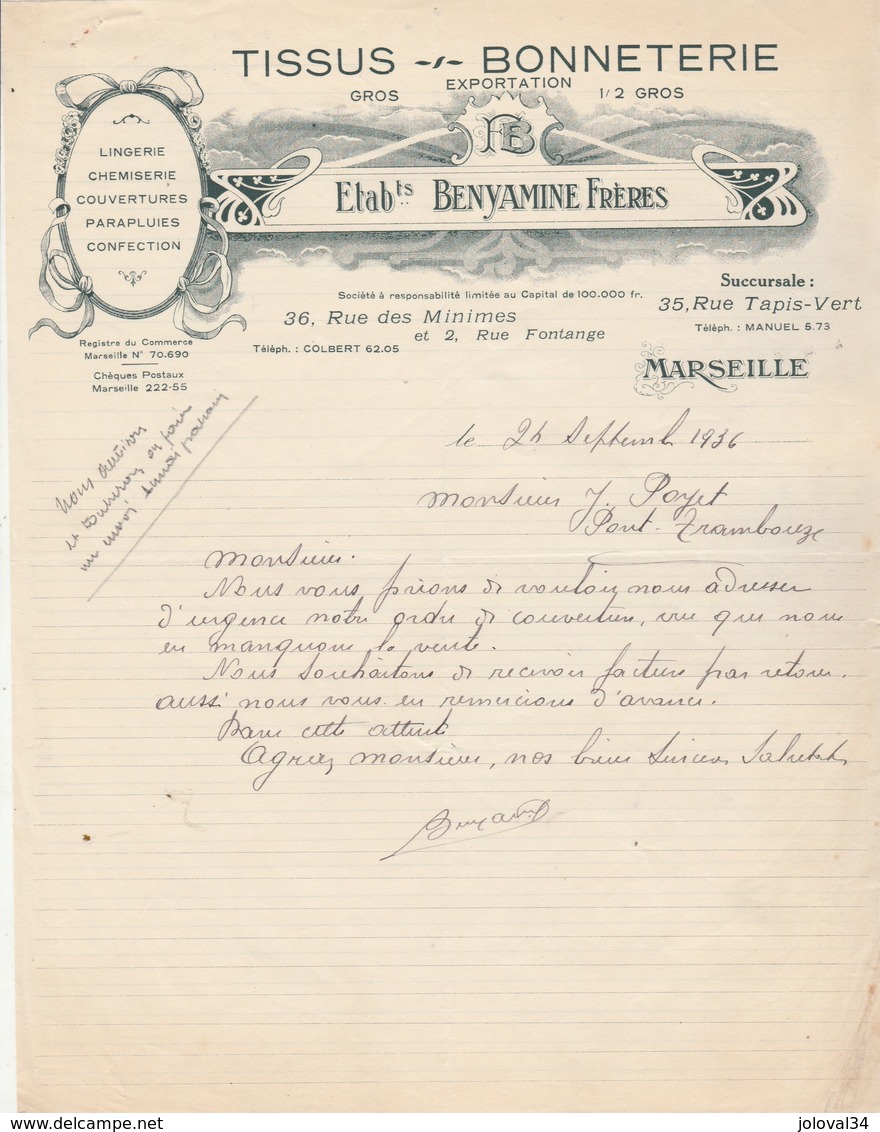 TISSUS BONNETERIE
EXPORTATION
GROS 1/2 GROS
FB
Etabts BENYAMINE FRÈRES
LINGERIE
CHEMISERIE
COUVERTURES
PARAPLUIES
CONFECTION
Société à responsabilité limitée au Capital de 100.000 fr.
36, Rue des Minimes
et 2, Rue Fontange
Téléph. : COLBERT 62.05
Succursale :
35, Rue Tapis-Vert
Téléph. : MANUEL 5.73
MARSEILLE
Registre du Commerce
Marseille N° 70.690
Chèques Postaux
Marseille 222-55
Nous
et en faire
un envoi
le 24 Septembre 1936
Monsieur J. Poyet
Pont-Trambouze
Monsieur.
Nous vous prions de vouloir nous adresser
d'urgence notre ordre de couvertures, vue que nous
en manquons la vente.
Nous souhaitons de recevoir facture par retour.
aussi nous vous en remercions d'avance.
Dans cette attente
Agréez monsieur, nos bien sincères Salutations
delcampe.net
joloval34